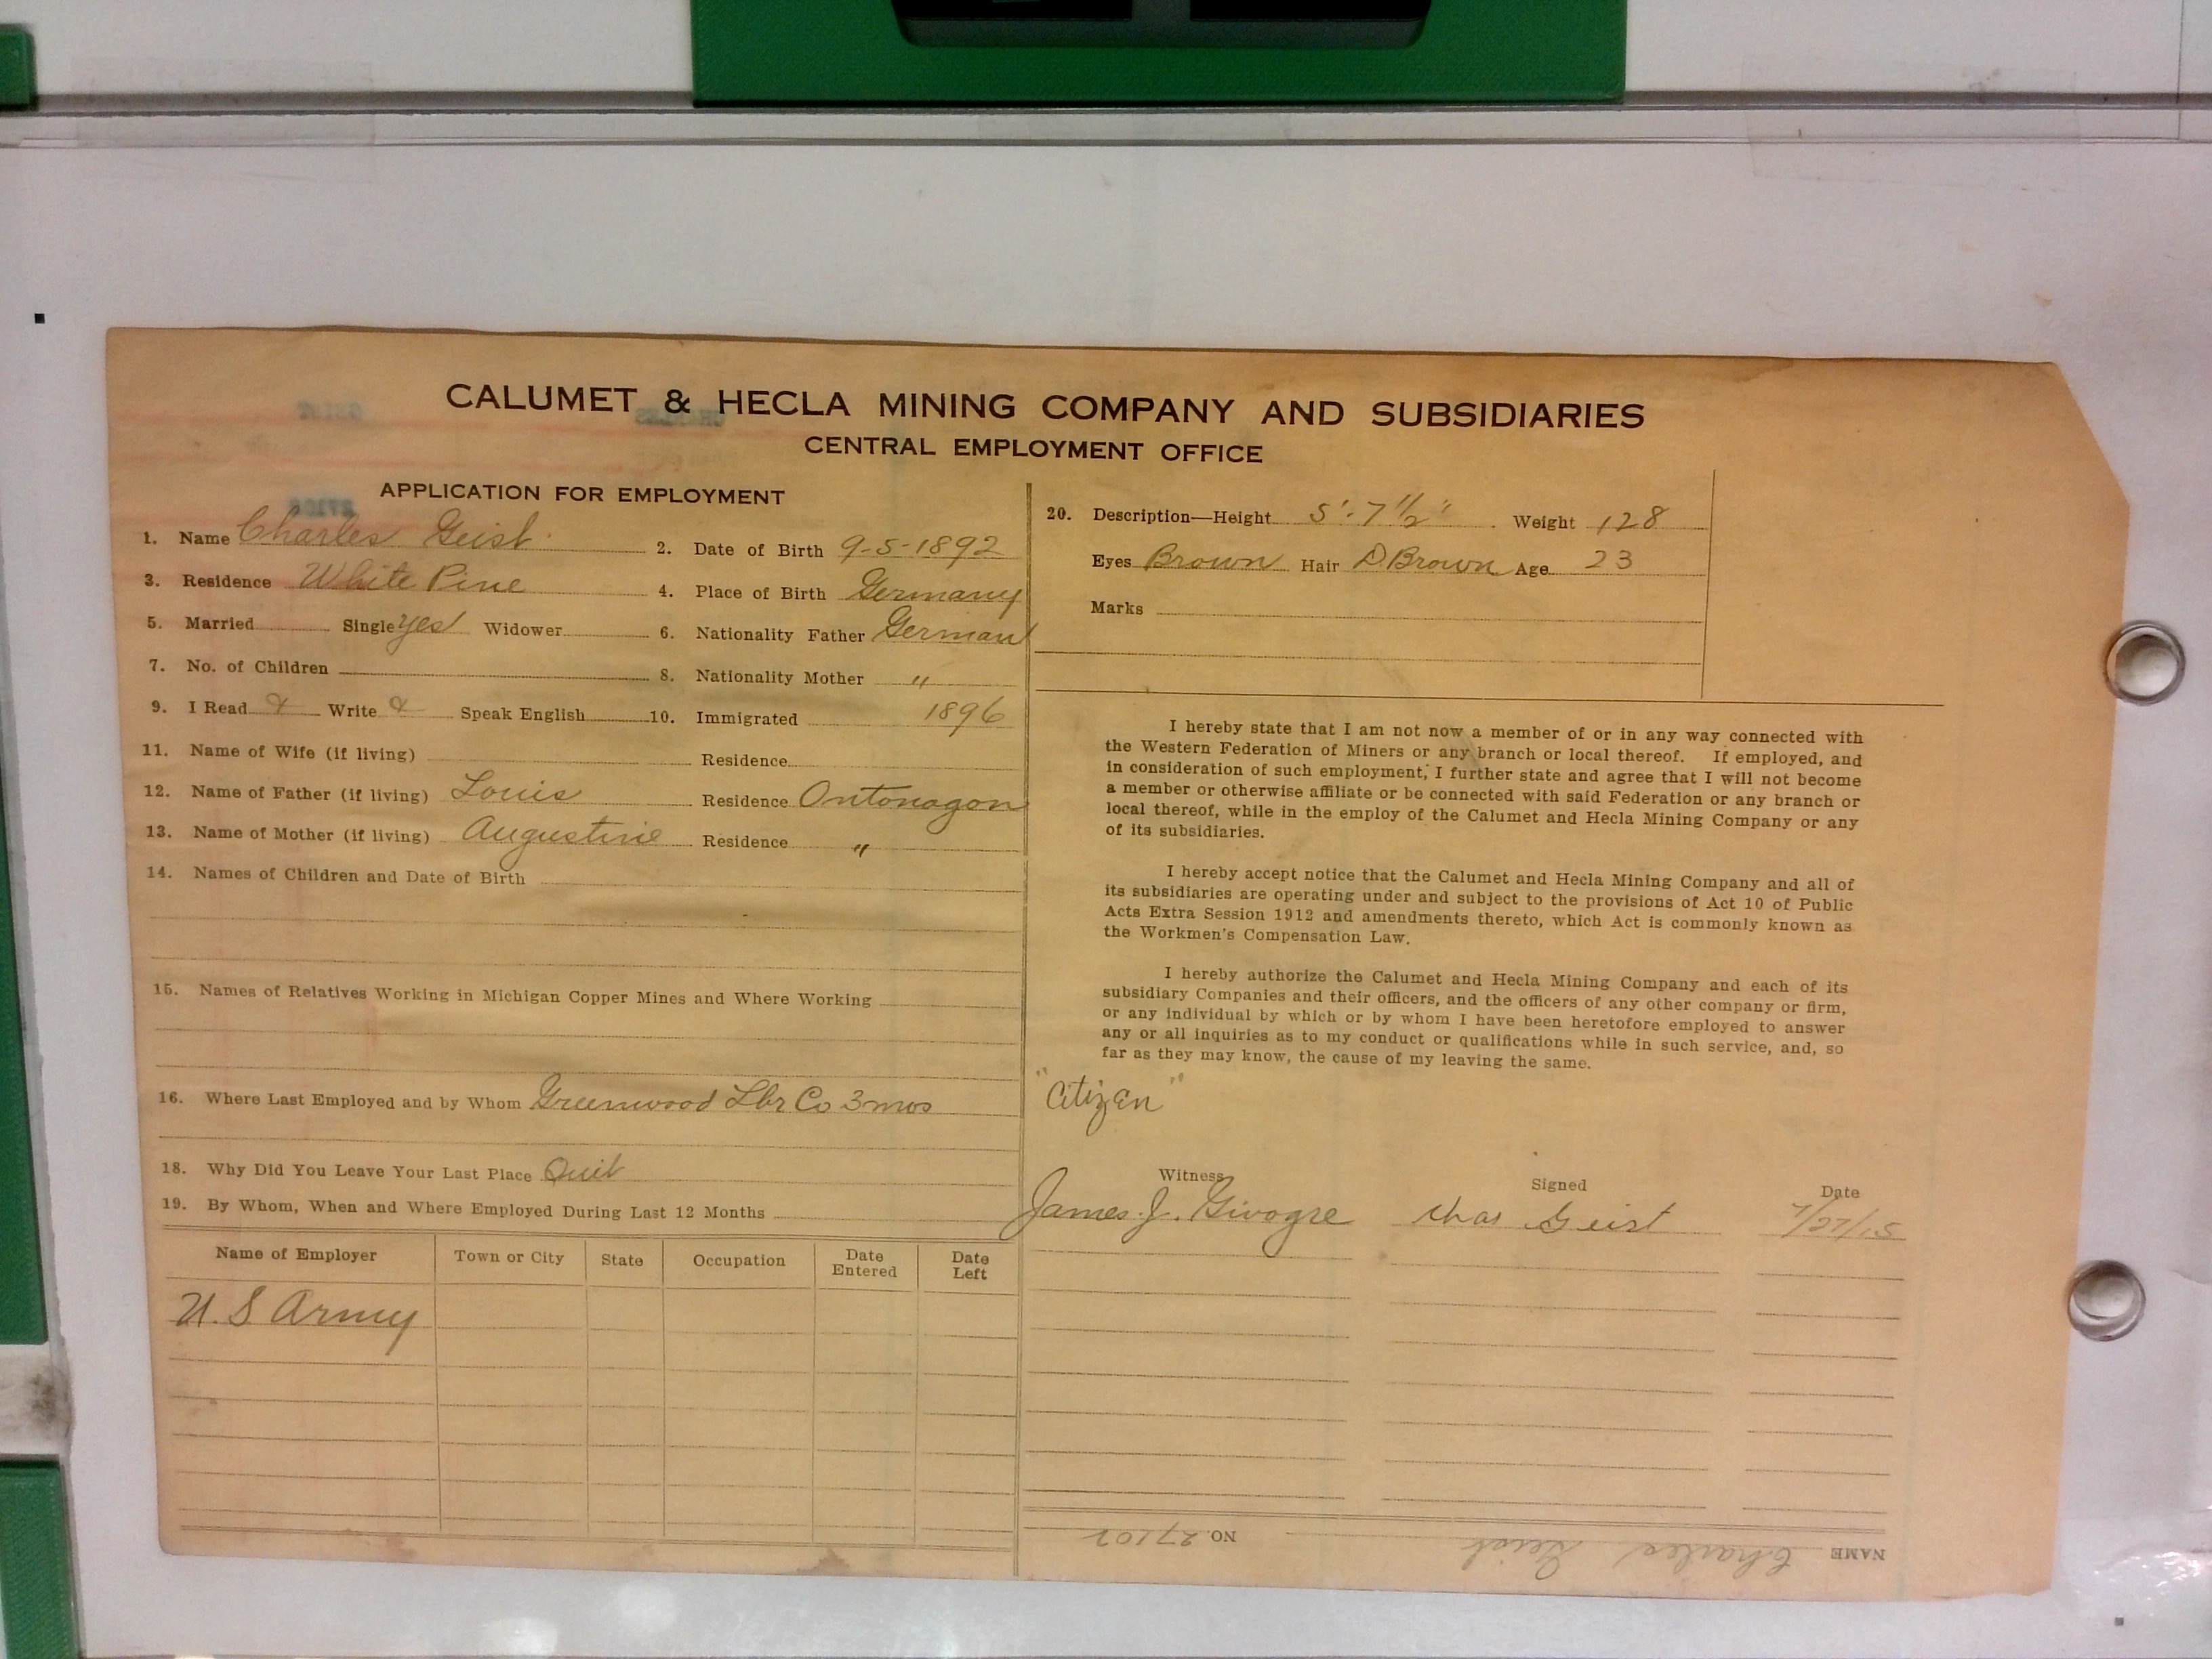 CALUMET & HECLA MINING COMPANY AND SUBSIDIARIES
CENTRAL EMPLOYMENT OFFICE
APPLICATION FOR EMPLOYMENT
1. Name Charles Geist 2. Date of Birth 9-5-1892
3. Residence White Pine 4. Place of Birth Germany
5. Married Single yes Widower 6. Nationality Father German
7. No. of Children 8. Nationality Mother "
9. I Read Write Speak English 10. Immigrated 1896
11. Name of Wife (if living) Residence
12. Name of Father (if living) Louis Residence Ontonagon
13. Name of Mother (if living) Augustine Residence "
14. Names of Children and Date of Birth
15. Names of Relatives Working in Michigan Copper Mines and Where Working
16. Where Last Employed and by Whom Greenwood Lbr Co 3 mos
18. Why Did You Leave Your Last Place Quit
19. By Whom, When and Where Employed During Last 12 Months
Name of Employer Town or City State Occupation Date Entered Date Left
U.S Army
20. Description—Height 5'-7 1/2" Weight 128
Eyes Brown Hair D.Brown Age 23
Marks
I hereby state that I am not now a member of or in any way connected with
the Western Federation of Miners or any branch or local thereof. If employed, and
in consideration of such employment, I further state and agree that I will not become
a member or otherwise affiliate or be connected with said Federation or any branch or
local thereof, while in the employ of the Calumet and Hecla Mining Company or any
of its subsidiaries.
I hereby accept notice that the Calumet and Hecla Mining Company and all of
its subsidiaries are operating under and subject to the provisions of Act 10 of Public
Acts Extra Session 1912 and amendments thereto, which Act is commonly known as
the Workmen's Compensation Law.
I hereby authorize the Calumet and Hecla Mining Company and each of its
subsidiary Companies and their officers, and the officers of any other company or firm,
or any individual by which or by whom I have been heretofore employed to answer
any or all inquiries as to my conduct or qualifications while in such service, and, so
far as they may know, the cause of my leaving the same.
"Citizen"
Witness Signed Date
James J. Givogre Chas Geist 7/27/15
NAME Charles Geist NO. 27102